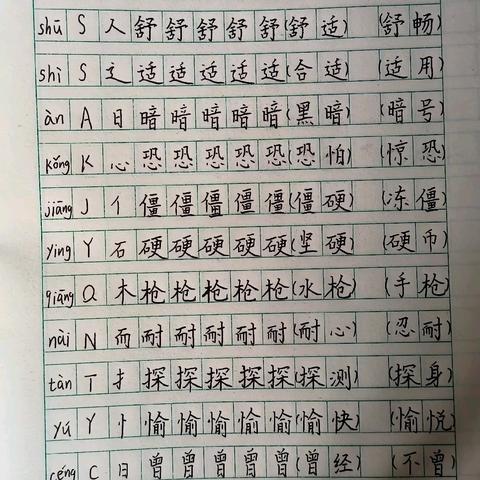 shū S 人 舒 舒 舒 舒 舒 (舒 适) (舒 畅)
shì S 辶 适 适 适 适 适 (合 适) (适 用)
àn A 日 暗 暗 暗 暗 暗 (黑 暗) (暗 号)
kǒng K 心 恐 恐 恐 恐 恐 (恐 怕) (惊 恐)
jiāng J 亻 僵 僵 僵 僵 僵 (僵 硬) (冻 僵)
ying Y 石 硬 硬 硬 硬 硬 (坚 硬) (硬 币)
qiāng Q 木 枪 枪 枪 枪 枪 (水 枪) (手 枪)
nài N 而 耐 耐 耐 耐 耐 (耐 心) (忍 耐)
tàn T 扌 探 探 探 探 探 (探 测) (探 身)
yú Y 忄 愉 愉 愉 愉 愉 (愉 快) (愉 悦)
céng C 日 曾 曾 曾 曾 曾 (曾 经) (不 曾)